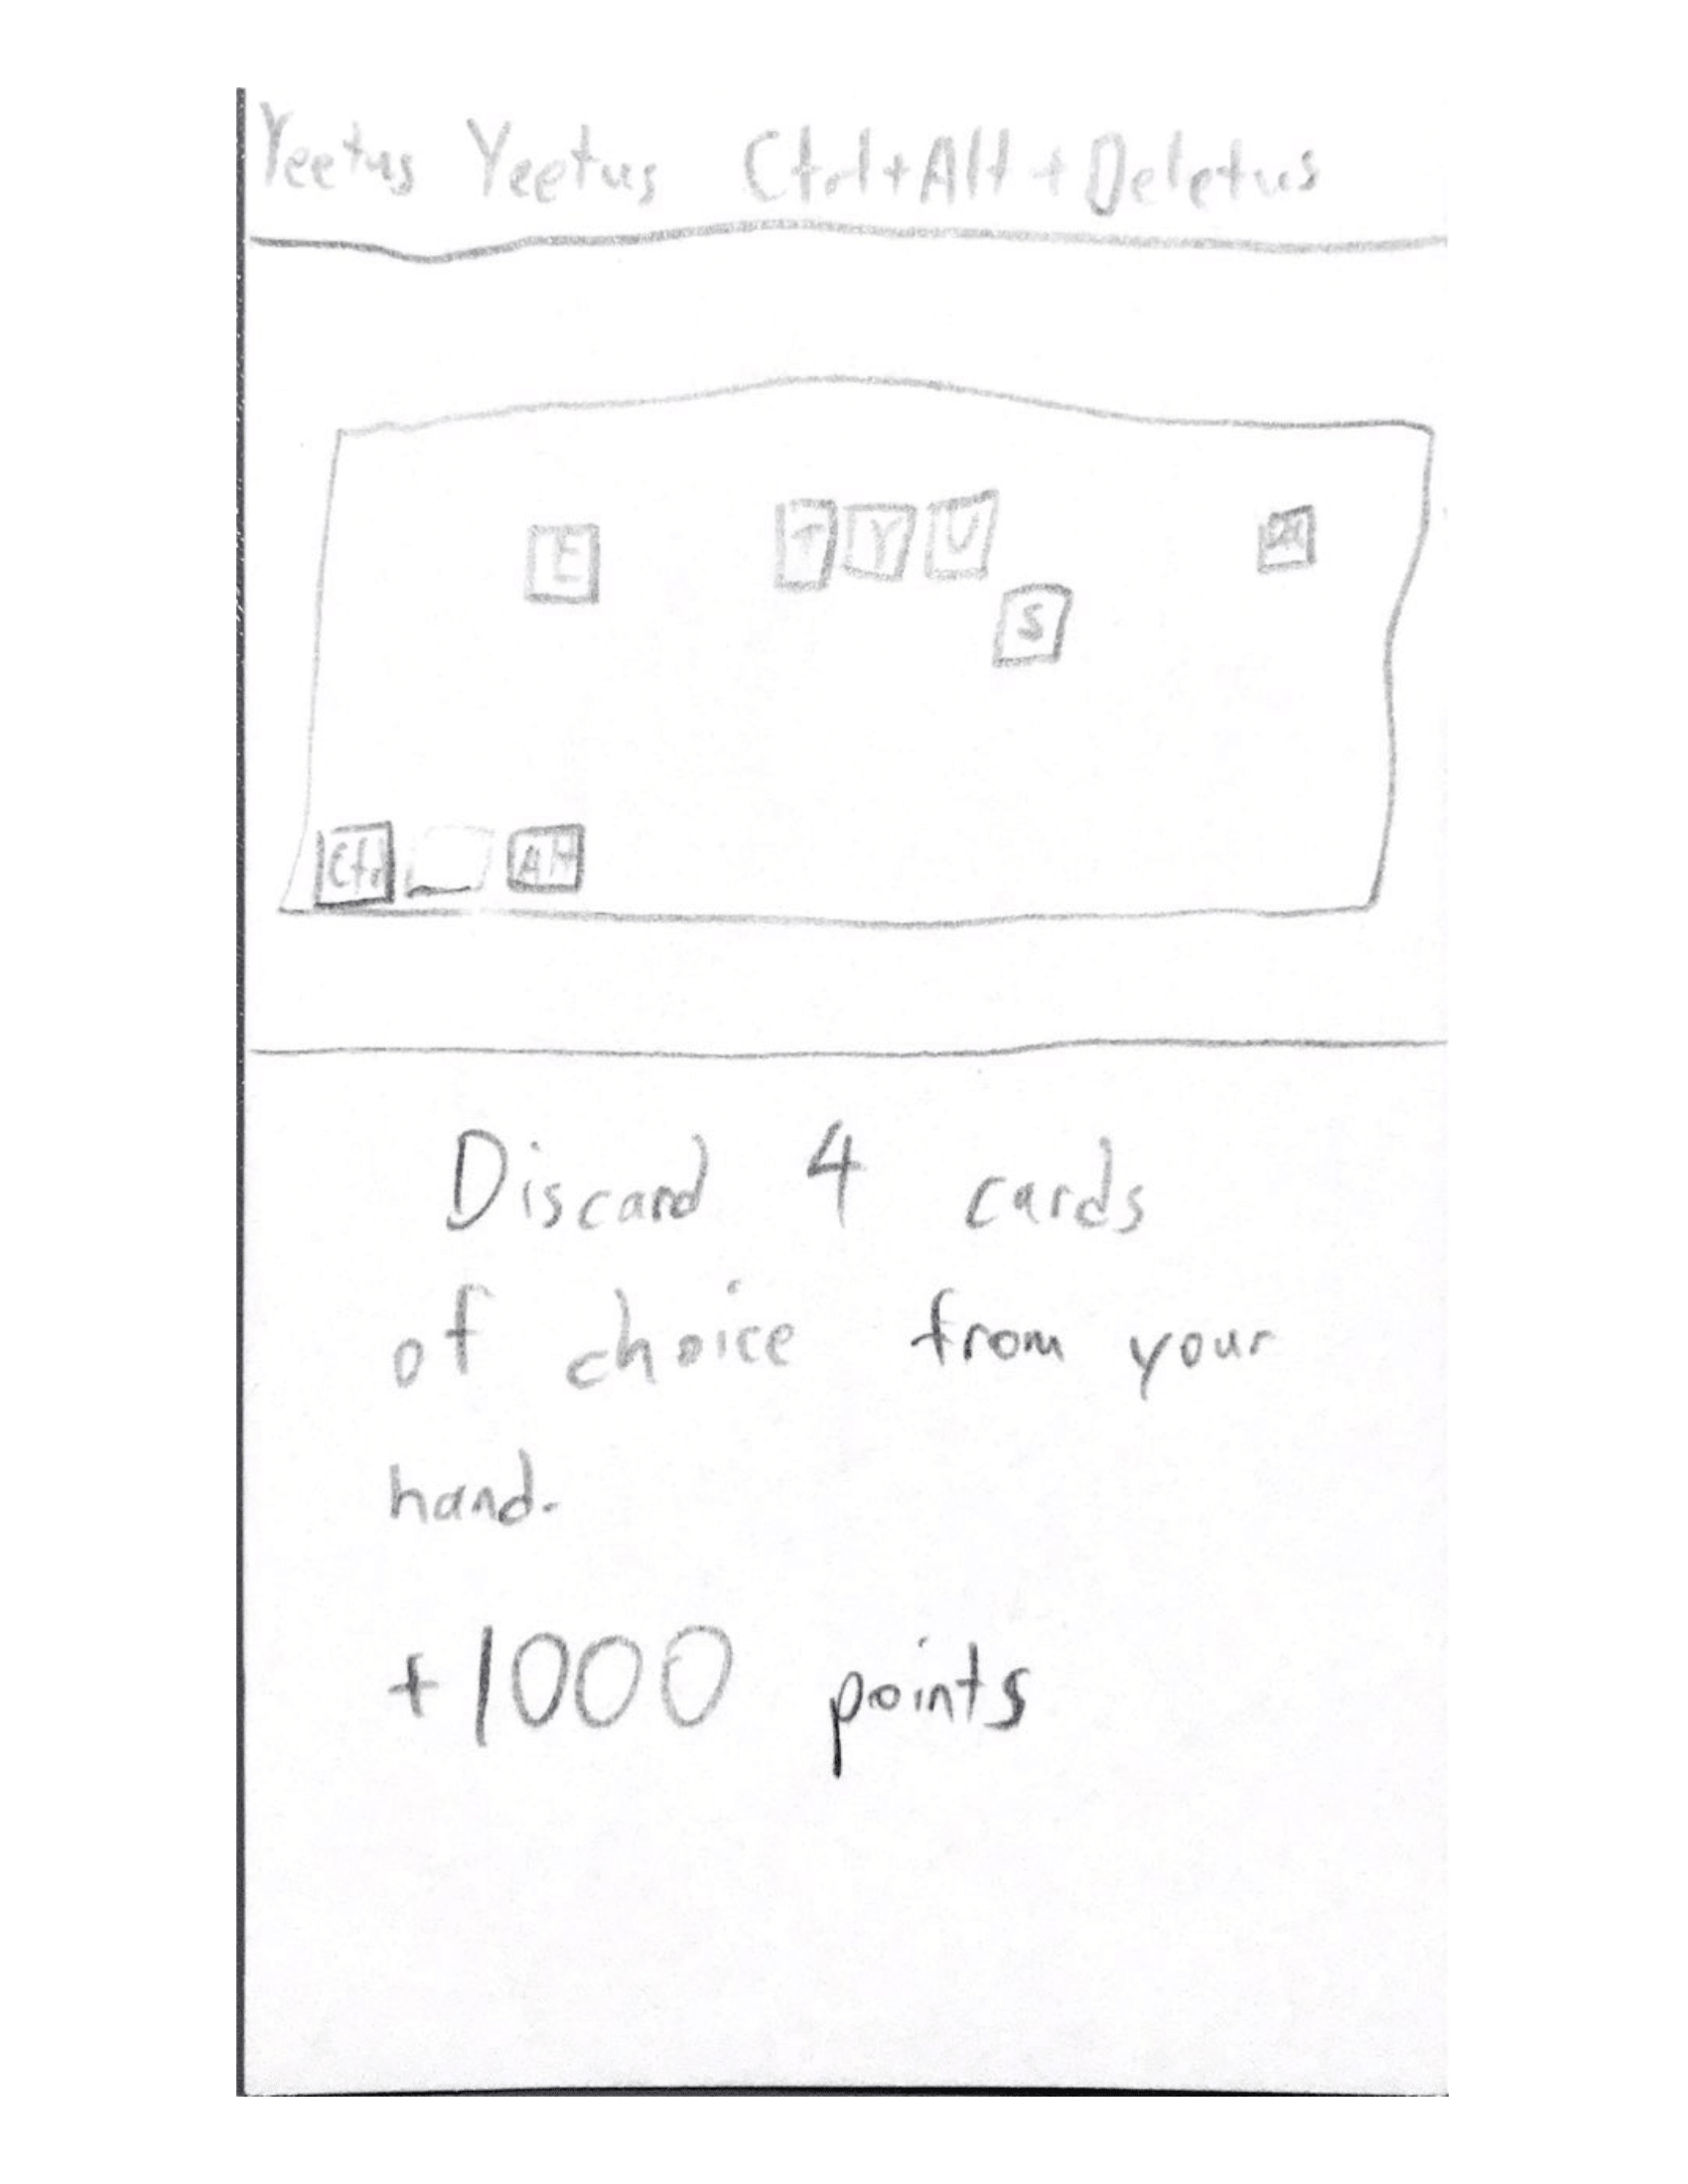 Yeetus Yeetus Ctrl+Alt+Deletus
E T Y U
S
Ctrl Alt
Discard 4 cards
of choice from your
hand.
+1000 points